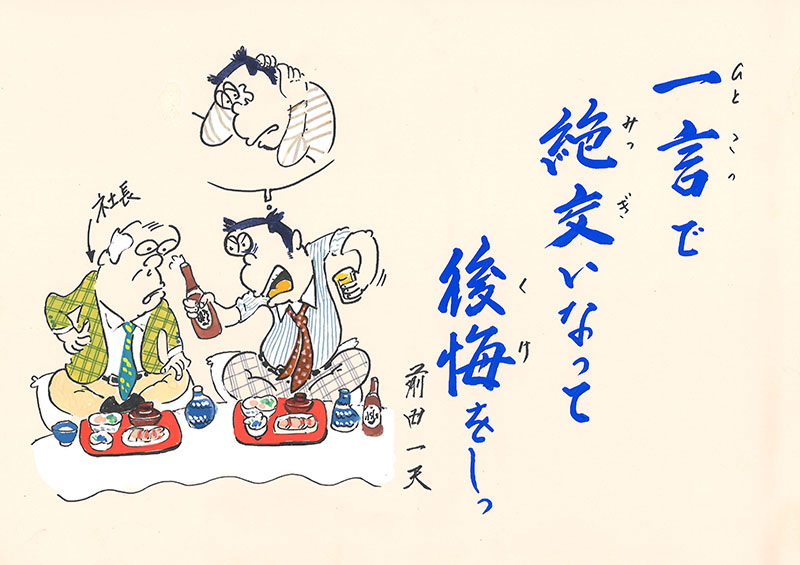 ひとこっ
一言で
みつぎ
絶交いなって
くけ
後悔をしっ
前田一天
社長